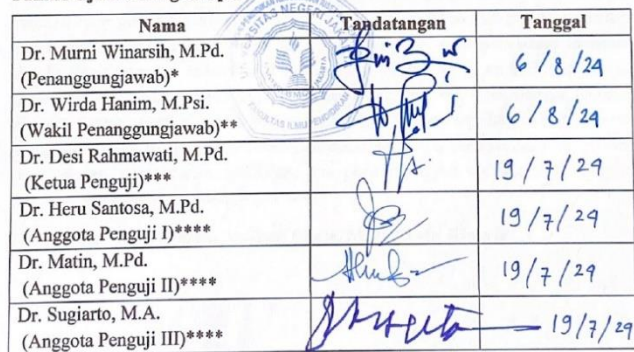 Nama Tandatangan Tanggal
Dr. Murni Winarsih, M.Pd.
(Penanggungjawab)* 6/8/24
Dr. Wirda Hanim, M.Psi.
(Wakil Penanggungjawab)** 6/8/24
Dr. Desi Rahmawati, M.Pd.
(Ketua Penguji)*** 19/7/24
Dr. Heru Santosa, M.Pd.
(Anggota Penguji I)**** 19/7/24
Dr. Matin, M.Pd.
(Anggota Penguji II)**** 19/7/24
Dr. Sugiarto, M.A.
(Anggota Penguji III)**** 19/7/24